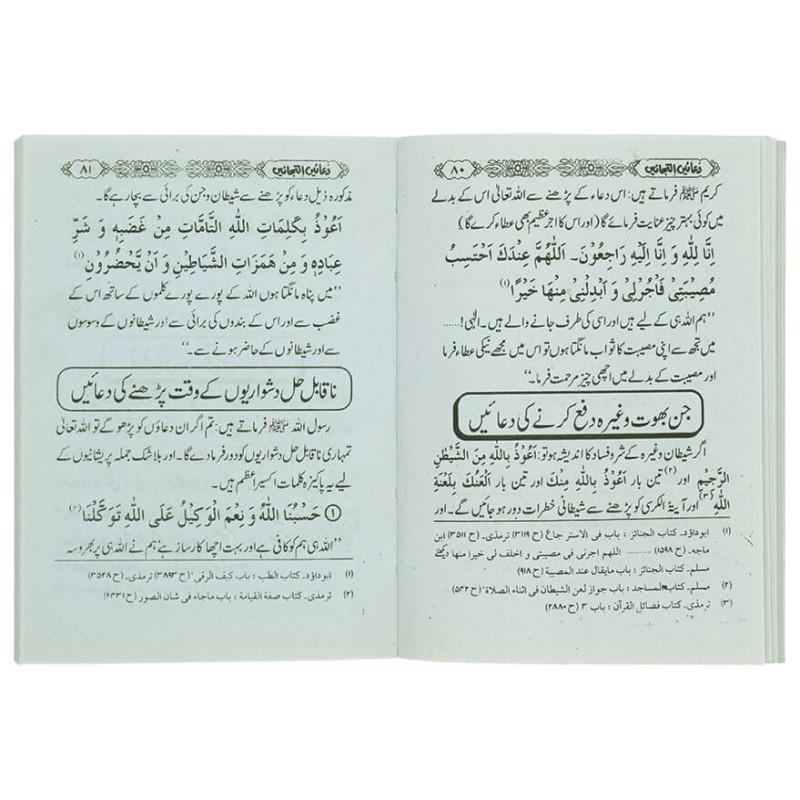 دُعائیں التجائیں
۸۰
کریم ﷺ فرماتے ہیں: اس دعاء کے پڑھنے سے اللہ تعالیٰ اس کے بدلے
میں کوئی بہتر چیز عنایت فرمائے گا (اور اس کا اجر عظیم بھی عطاء کرے گا)
اِنَّا لِلّٰهِ وَ اِنَّا اِلَيْهِ رَاجِعُوْنَ۔ اَللّٰهُمَّ عِنْدَكَ اَحْتَسِبُ
مُصِيْبَتِيْ فَأْجُرْنِيْ وَ اَبْدِلْنِيْ مِنْهَا خَيْرًا (۱)
”ہم اللہ ہی کے لیے ہیں اور اسی کی طرف جانے والے ہیں۔ الٰہی!......
میں تجھ سے اپنی مصیبت کا ثواب مانگتا ہوں تو اس میں مجھے نیکی عطاء فرما
اور مصیبت کے بدلے میں اچھی چیز مرحمت فرما۔“
جن بھوت وغیرہ دفع کرنے کی دعائیں
اگر شیطان وغیرہ کے شر و فساد کا اندیشہ ہو تو: اَعُوْذُ بِاللّٰهِ مِنَ الشَّيْطٰنِ
الرَّجِيْمِ اور (۲) تین بار اَعُوْذُ بِاللّٰهِ مِنْكَ اور تین بار اَلْعَنُكَ بِلَعْنَةِ
اللّٰهِ (۳) اور آیۃ الکرسی کو پڑھنے سے شیطانی خطرات دور ہو جائیں گے۔ اور
(۱) ابوداؤد۔ کتاب الجنائز: باب فی الاسترجاع (ح ۳۱۱۹) ترمذی۔ (ح ۳۵۱۱) ابن
ماجه۔ (ح ۱۵۹۸) ......... اللهم اجرنی فی مصیبتی و اخلف لی خیرا منها دیکھئے
مسلم۔ کتاب الجنائز: باب مایقال عند المصیبة (ح ۹۱۸)
(۲) مسلم۔ کتاب المساجد: باب جواز لعن الشیطان فی اثناء الصلاة' (ح ۵۴۲)
(۳) ترمذی۔ کتاب فضائل القرآن: باب ۳ (ح ۲۸۸۰)
دُعائیں التجائیں
۸۱
مذکورہ ذیل دعاء کو پڑھنے سے شیطان و جن کی برائی سے بچا رہے گا۔
اَعُوْذُ بِكَلِمَاتِ اللّٰهِ التَّامَّاتِ مِنْ غَضَبِهٖ وَ شَرِّ
عِبَادِهٖ وَ مِنْ هَمَزَاتِ الشَّيَاطِيْنِ وَ اَنْ يَّحْضُرُوْنِ (۱)
”میں پناہ مانگتا ہوں اللہ کے پورے پورے کلموں کے ساتھ اس کے
غضب سے اور اس کے بندوں کی برائی سے اور شیطانوں کے وسوسوں
سے اور شیطانوں کے حاضر ہونے سے۔“
ناقابل حل دشواریوں کے وقت پڑھنے کی دعائیں
رسول اللہ ﷺ فرماتے ہیں: تم اگر ان دعاؤں کو پڑھو گے تو اللہ تعالیٰ
تمہاری ناقابل حل دشواریوں کو دور فرما دے گا۔ اور بلاشک جملہ پریشانیوں کے
لیے یہ پاکیزہ کلمات اکسیر اعظم ہیں۔
① حَسْبُنَا اللّٰهُ وَ نِعْمَ الْوَكِيْلُ عَلَى اللّٰهِ تَوَكَّلْنَا (۲)
”اللہ ہی ہم کو کافی ہے اور بہت اچھا کارساز ہے' ہم نے اللہ ہی پر بھروسہ
(۱) ابوداؤد۔ کتاب الطب: باب کیف الرقی' (ح ۳۸۹۳) ترمذی۔ (ح ۳۵۲۸)
(۲) ترمذی۔ کتاب صفة القیامة: باب ماجاء فی شان الصور (ح ۲۴۳۱)